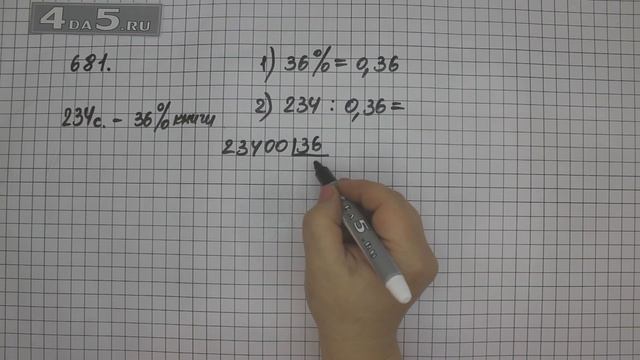 4DA5.RU
681.
234с. - 36% книги
1) 36% = 0,36
2) 234 : 0,36 =
23400 36
4DA5.RU